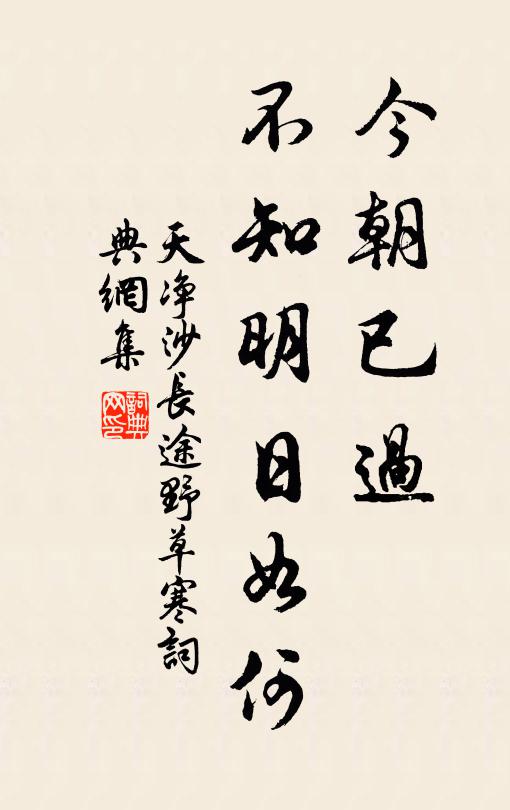 今朝已過
不知明日如何
天净沙長途野草寒詞
典網集
詞典網印